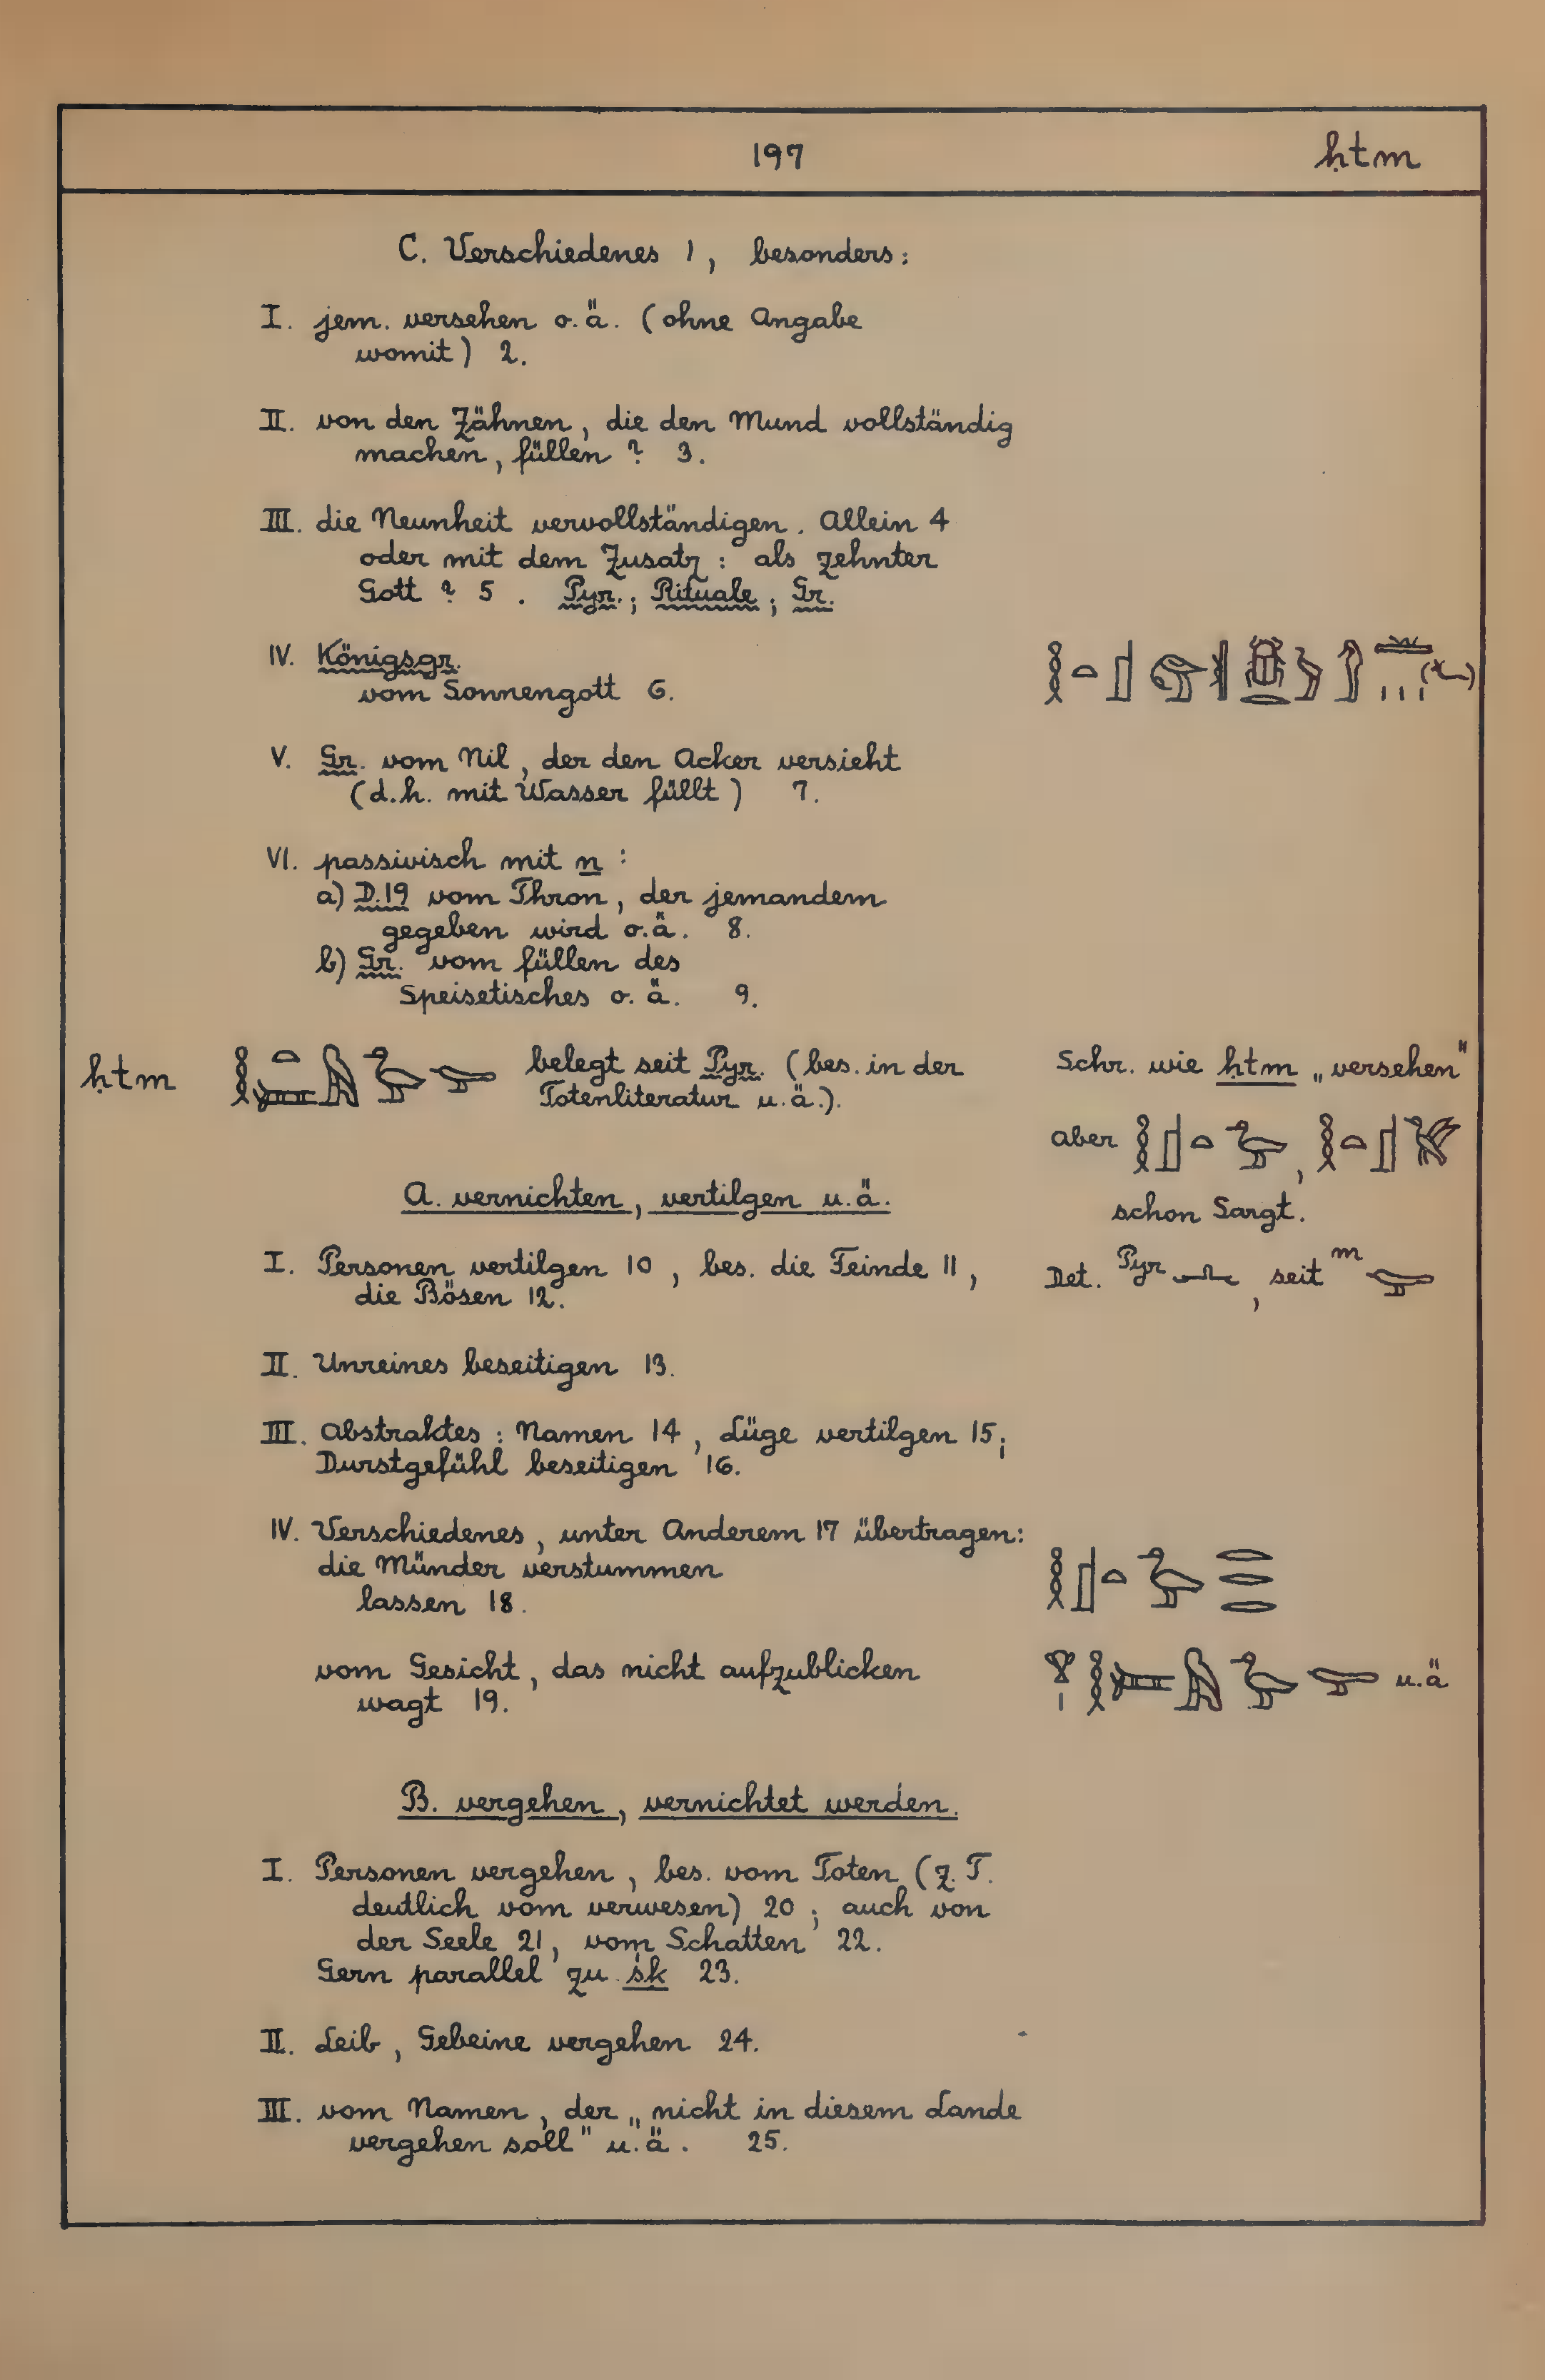 197 ḥtm
C. Verschiedenes 1, besonders:
I. jem. versehen o.ä. (ohne Angabe
womit) 2.
II. von den Zähnen, die den Mund vollständig
machen, füllen ? 3.
III. die Neunheit vervollständigen. Allein 4
oder mit dem Zusatz: als zehnter
Gott ? 5. Pyr.; Rituale; Gr.
IV. Königsgr.
vom Sonnengott 6.
V. Gr. vom Nil, der den Acker versieht
(d.h. mit Wasser füllt) 7.
VI. passivisch mit n:
a) D.19 vom Thron, der jemandem
gegeben wird o.ä. 8.
b) Gr. vom füllen des
Speisetisches o.ä. 9.
ḥtm belegt seit Pyr. (bes. in der
Totenliteratur u.ä.).
Schr. wie ḥtm „versehen"
aber
schon Sargt.
Det. Pyr, seit m
A. vernichten, vertilgen u.ä.
I. Personen vertilgen 10, bes. die Feinde 11,
die Bösen 12.
II. Unreines beseitigen 13.
III. Abstraktes: Namen 14, Lüge vertilgen 15;
Durstgefühl beseitigen 16.
IV. Verschiedenes, unter Anderem 17 übertragen:
die Münder verstummen
lassen 18.
vom Gesicht, das nicht aufzublicken u.ä
wagt 19.
B. vergehen, vernichtet werden.
I. Personen vergehen, bes. vom Toten (z.T.
deutlich vom verwesen) 20; auch von
der Seele 21, vom Schatten 22.
Gern parallel zu śk 23.
II. Leib, Gebeine vergehen 24.
III. vom Namen, der „nicht in diesem Lande
vergehen soll" u.ä. 25.